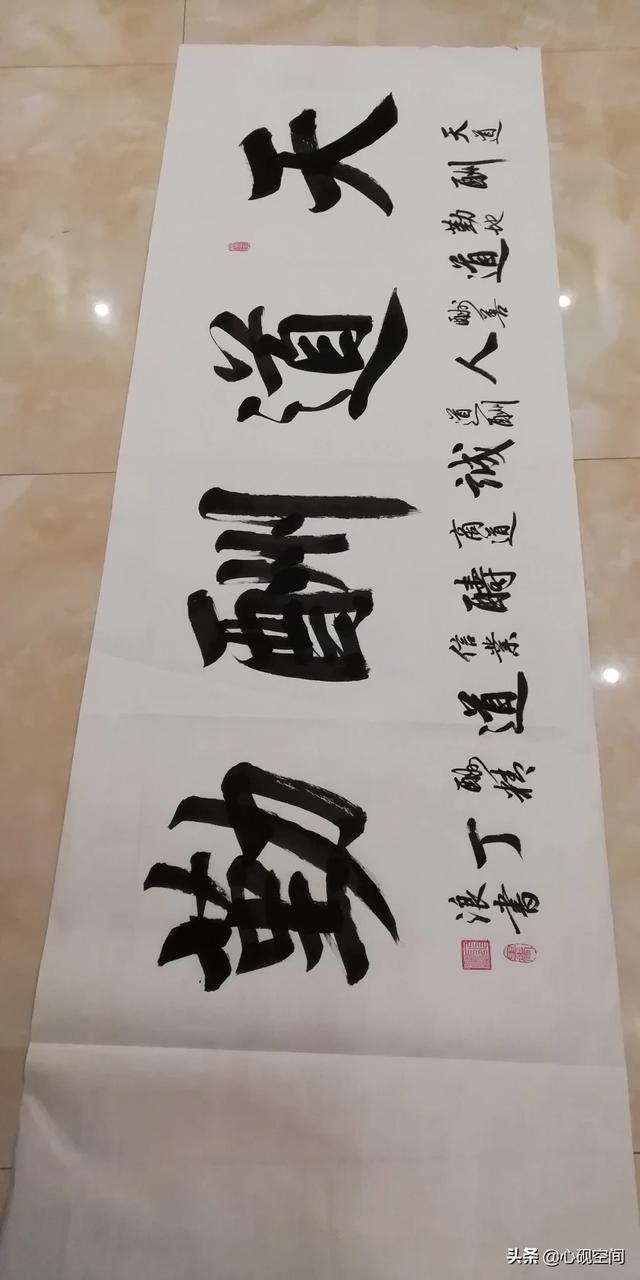 天道酬勤
天道酬勤地道酬善人道酬诚商道醻信業道酬精丁浪書
头条 @心砚空间